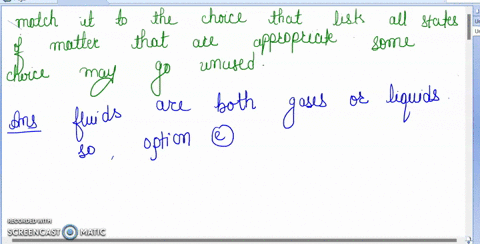 match it to the choice that lists all states
of matter that are appropreate some
choice may go unused.
Ans fluids are both gases or liquids.
so, option e
RECORDED WITH
SCREENCAST MATIC